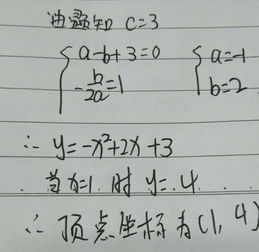 由题知 C=3
{a-b+3=0 {a=-1
-b/2a=1 b=2
∴ y=-x²+2x+3
当x=1时 y=4
∴ 顶点坐标为(1, 4)